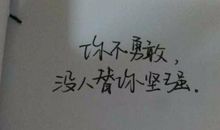 你不勇敢,
没人替你坚强.